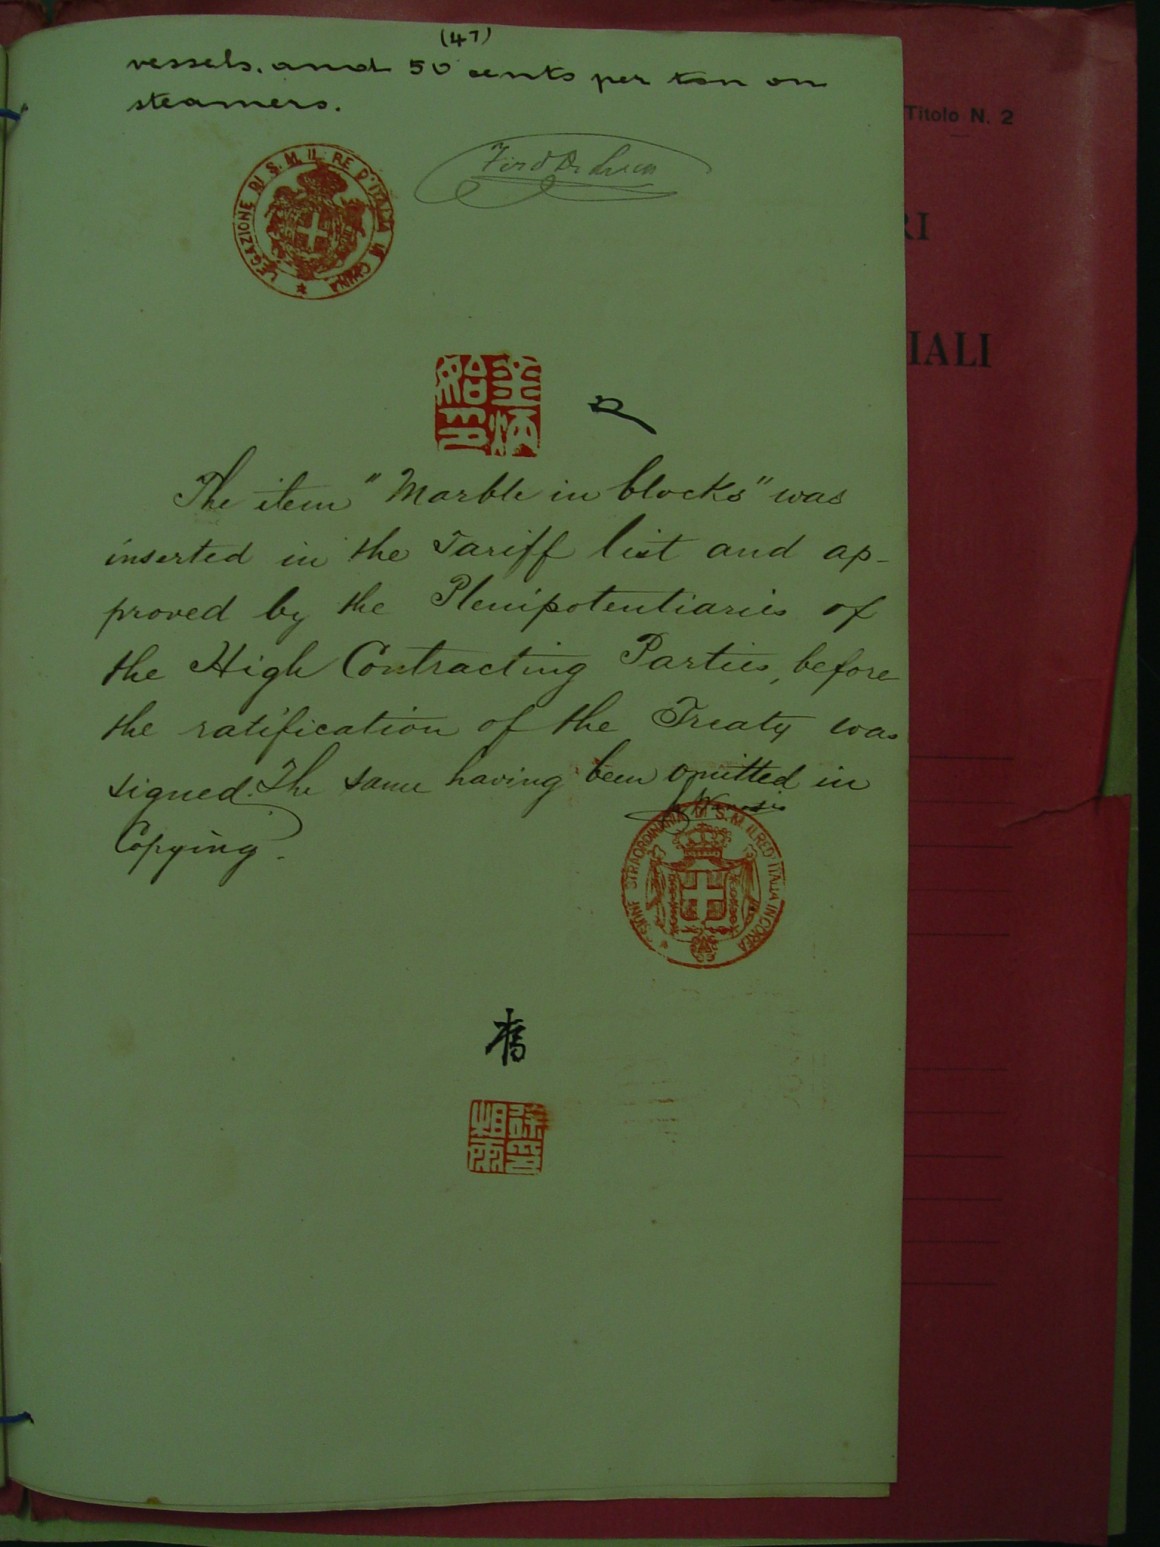 (47)
vessels, and 50 cents per ton on
steamers.
Ferd De Luca
LEGAZIONE DI S. M. IL RE D'ITALIA IN CHINA
The item "Marble in blocks" was
inserted in the Tariff list and ap-
proved by the Plenipotentiaries of
the High Contracting Parties, before
the ratification of the Treaty was
signed. The same having been omitted in
Copying.
STRAORDINARIA DI S. M. IL RE D'ITALIA IN COREA
Titolo N. 2
RI
IALI